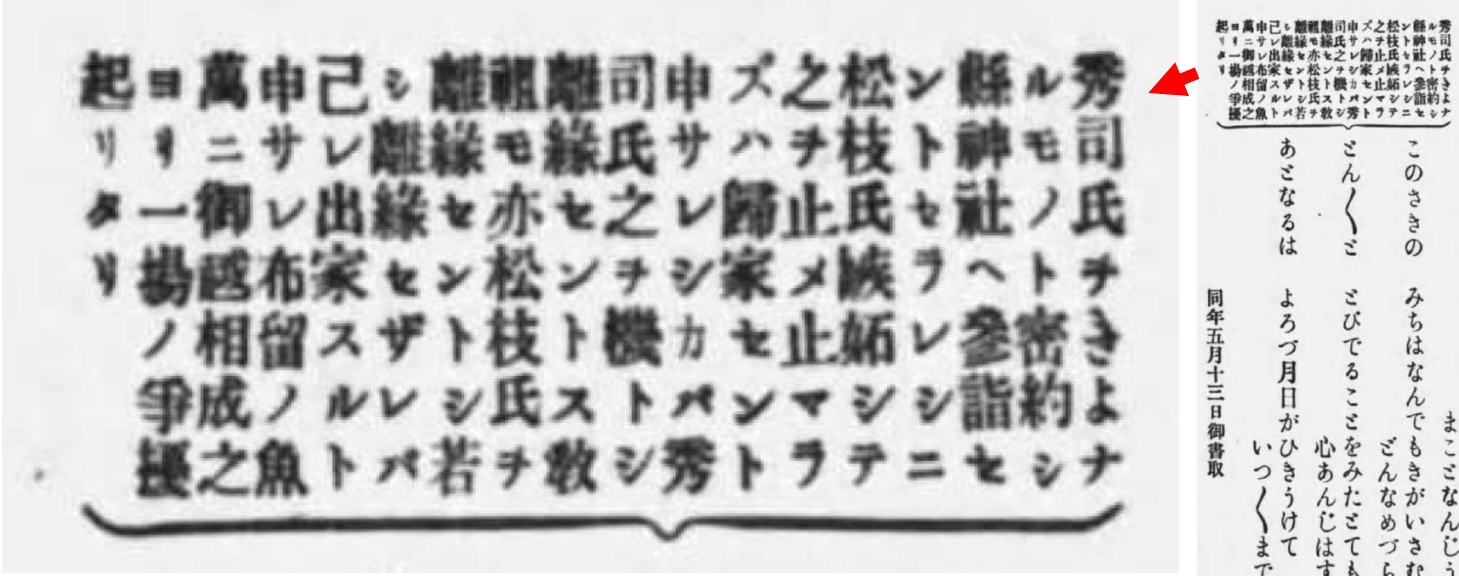 秀司氏ヲきよナ
ルモノト密約シ
縣神社ヘ參詣セ
ントセラレシニ
松枝氏嫉妬シテ
之ヲ止メ止マラ
ズハ歸家セント
申サレシカバ秀
司氏之ヲ機トシ
離緣セントス敎
祖モ亦松枝氏ヲ
離緣セントシ若
シ離緣セザレバ
己レ出家スルト
申サレ布留ノ魚
萬ニ御越相成之
ヨリ一揚ノ爭擾
起リタリ
秀司氏ヲきよナ
ルモノト密約シ
縣神社ヘ參詣セ
ントセラレシニ
松枝氏嫉妬シテ
之ヲ止メ止マラ
ズハ歸家セント
申サレシカバ秀
司氏之ヲ機トシ
離緣セントス敎
祖モ亦松枝氏ヲ
離緣セントシ若
シ離緣セザレバ
己レ出家スルト
申サレ布留ノ魚
萬ニ御越相成之
ヨリ一揚ノ爭擾
起リタリ
まことなんじう
このさきの みちはなんでもきがいさむ
どんなめづら
とん〳〵と とびでることをみたとても
心あんじはす
あとなるは よろづ月日がひきうけて
いつ〳〵まで
同年五月十三日御書取